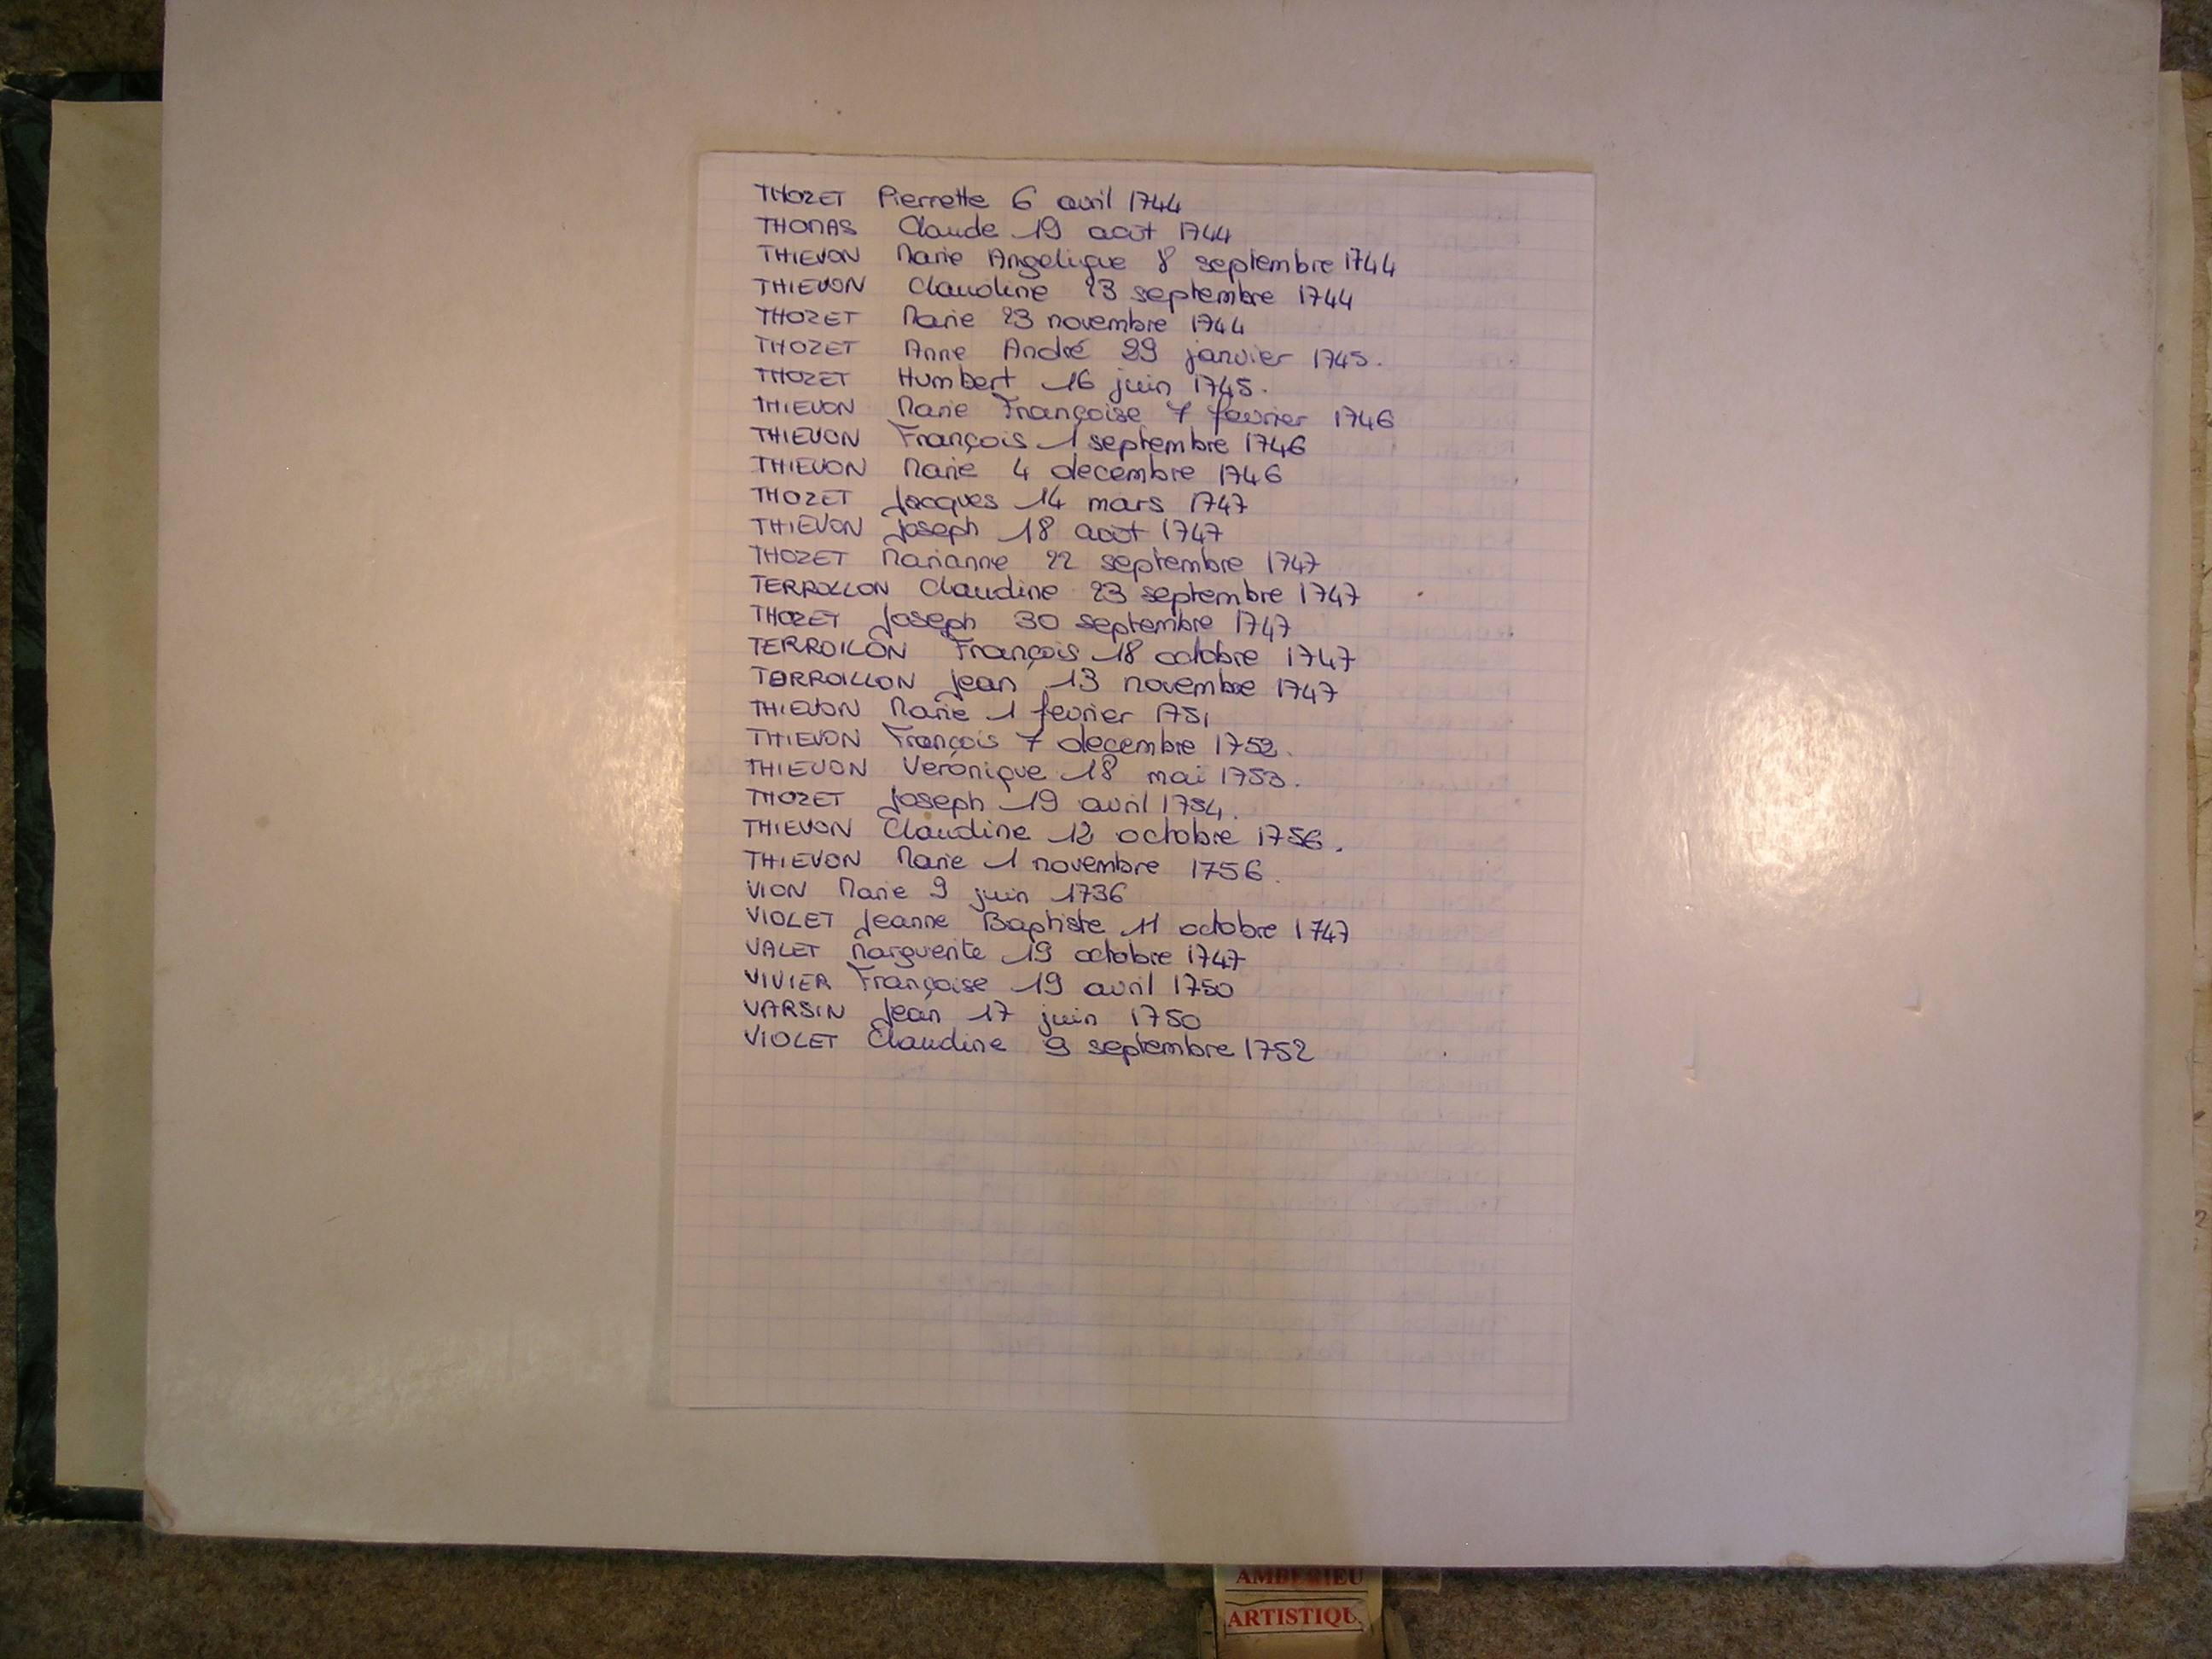 THOZET Pierrette 6 avril 1744
THOMAS Claude 19 août 1744
THIEVON Marie Angelique 8 septembre 1744
THIEVON Claudine 23 septembre 1744
THOZET Marie 23 novembre 1744
THOZET Anne André 29 janvier 1745.
THOZET Humbert 16 juin 1745.
THIEVON Marie Françoise 7 fevrier 1746
THIEVON François 1 septembre 1746
THIEVON Marie 4 decembre 1746
THOZET Jacques 14 mars 1747
THIEVON Joseph 18 août 1747
THOZET Marianne 22 septembre 1747
TERROLLON Claudine 23 septembre 1747
THOZET Joseph 30 septembre 1747
TERROILON François 18 octobre 1747
TERROILLON Jean 13 novembre 1747
THIEVON Marie 1 fevrier 1751
THIEVON François 7 decembre 1752.
THIEVON Veronique 18 mai 1753.
THOZET Joseph 19 avril 1754.
THIEVON Claudine 12 octobre 1756.
THIEVON Marie 1 novembre 1756.
VION Marie 9 juin 1736
VIOLET Jeanne Baptiste 11 octobre 1747
VALET Marguerite 19 octobre 1747
VIVIER Françoise 19 avril 1750
VARSIN Jean 17 juin 1750
VIOLET Claudine 9 septembre 1752
AMBERIEU
ARTISTIQU